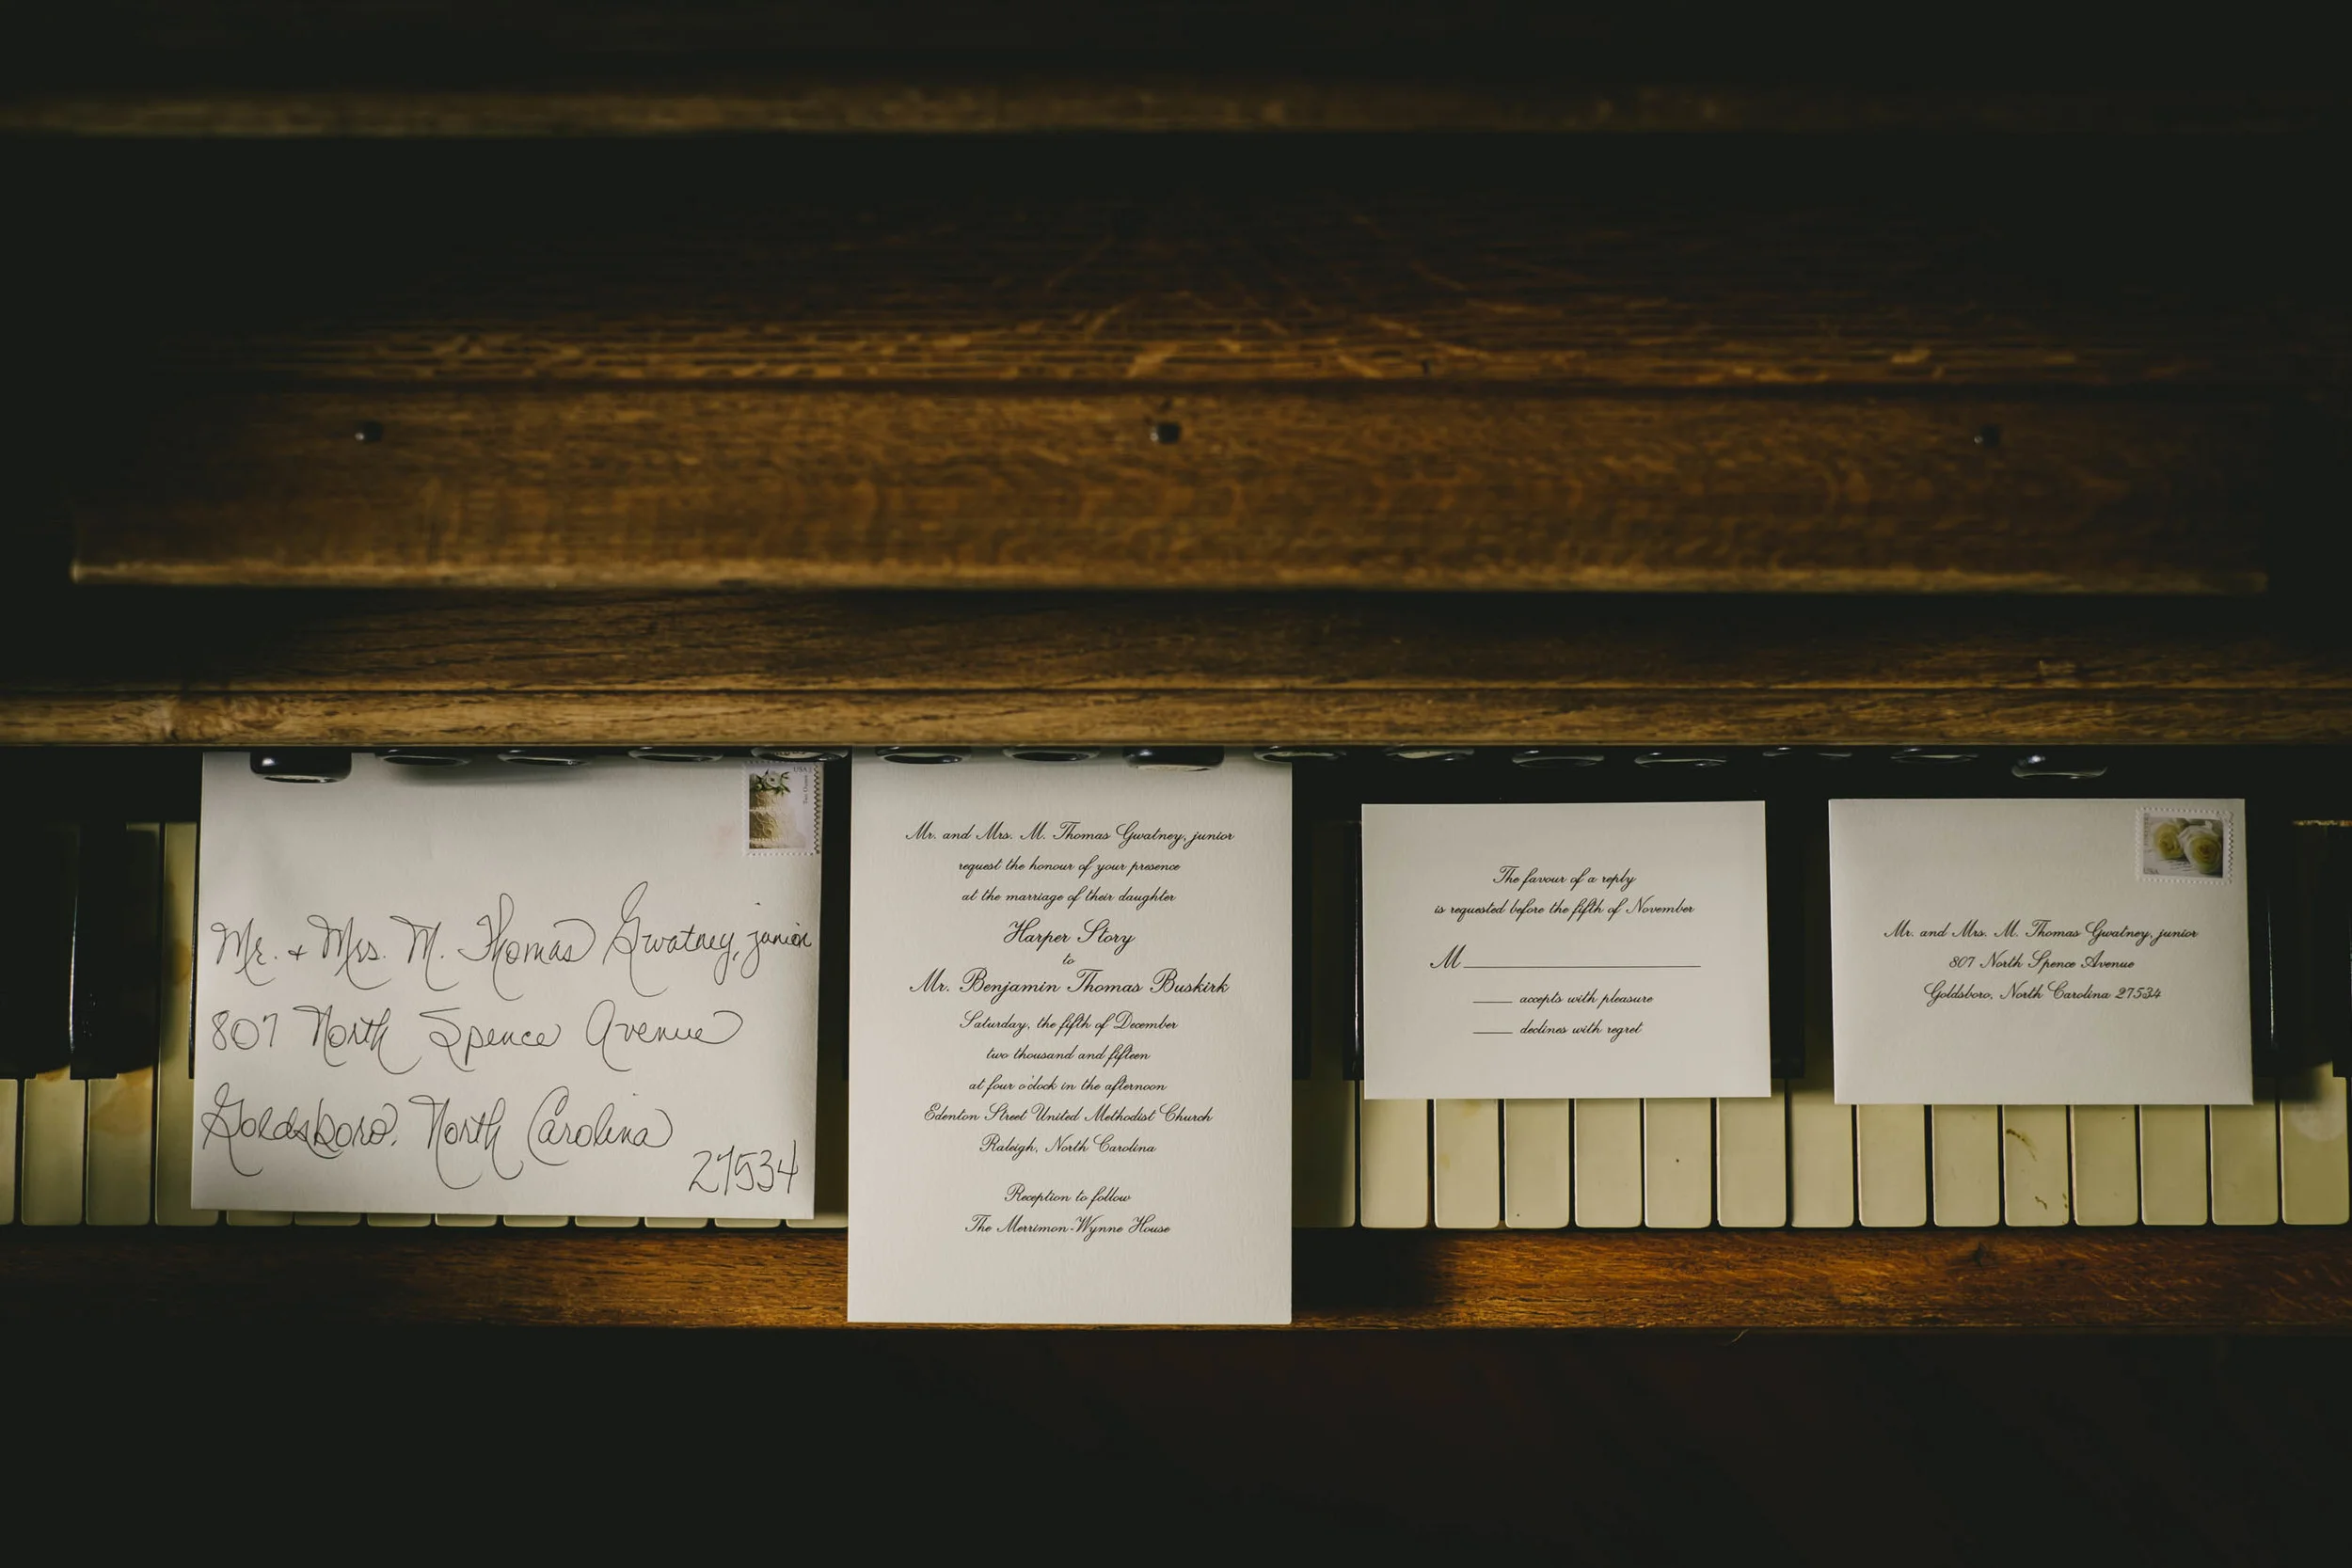 Mr. + Mrs. M. Thomas Gwatney, junior
807 North Spence Avenue
Goldsboro, North Carolina
27534
USA
Mr. and Mrs. M. Thomas Gwatney, junior
request the honour of your presence
at the marriage of their daughter
Harper Story
to
Mr. Benjamin Thomas Buskirk
Saturday, the fifth of December
two thousand and fifteen
at four o'clock in the afternoon
Edenton Street United Methodist Church
Raleigh, North Carolina
Reception to follow
The Merrimon-Wynne House
The favour of a reply
is requested before the fifth of November
M
accepts with pleasure
declines with regret
USA
Mr. and Mrs. M. Thomas Gwatney, junior
807 North Spence Avenue
Goldsboro, North Carolina 27534